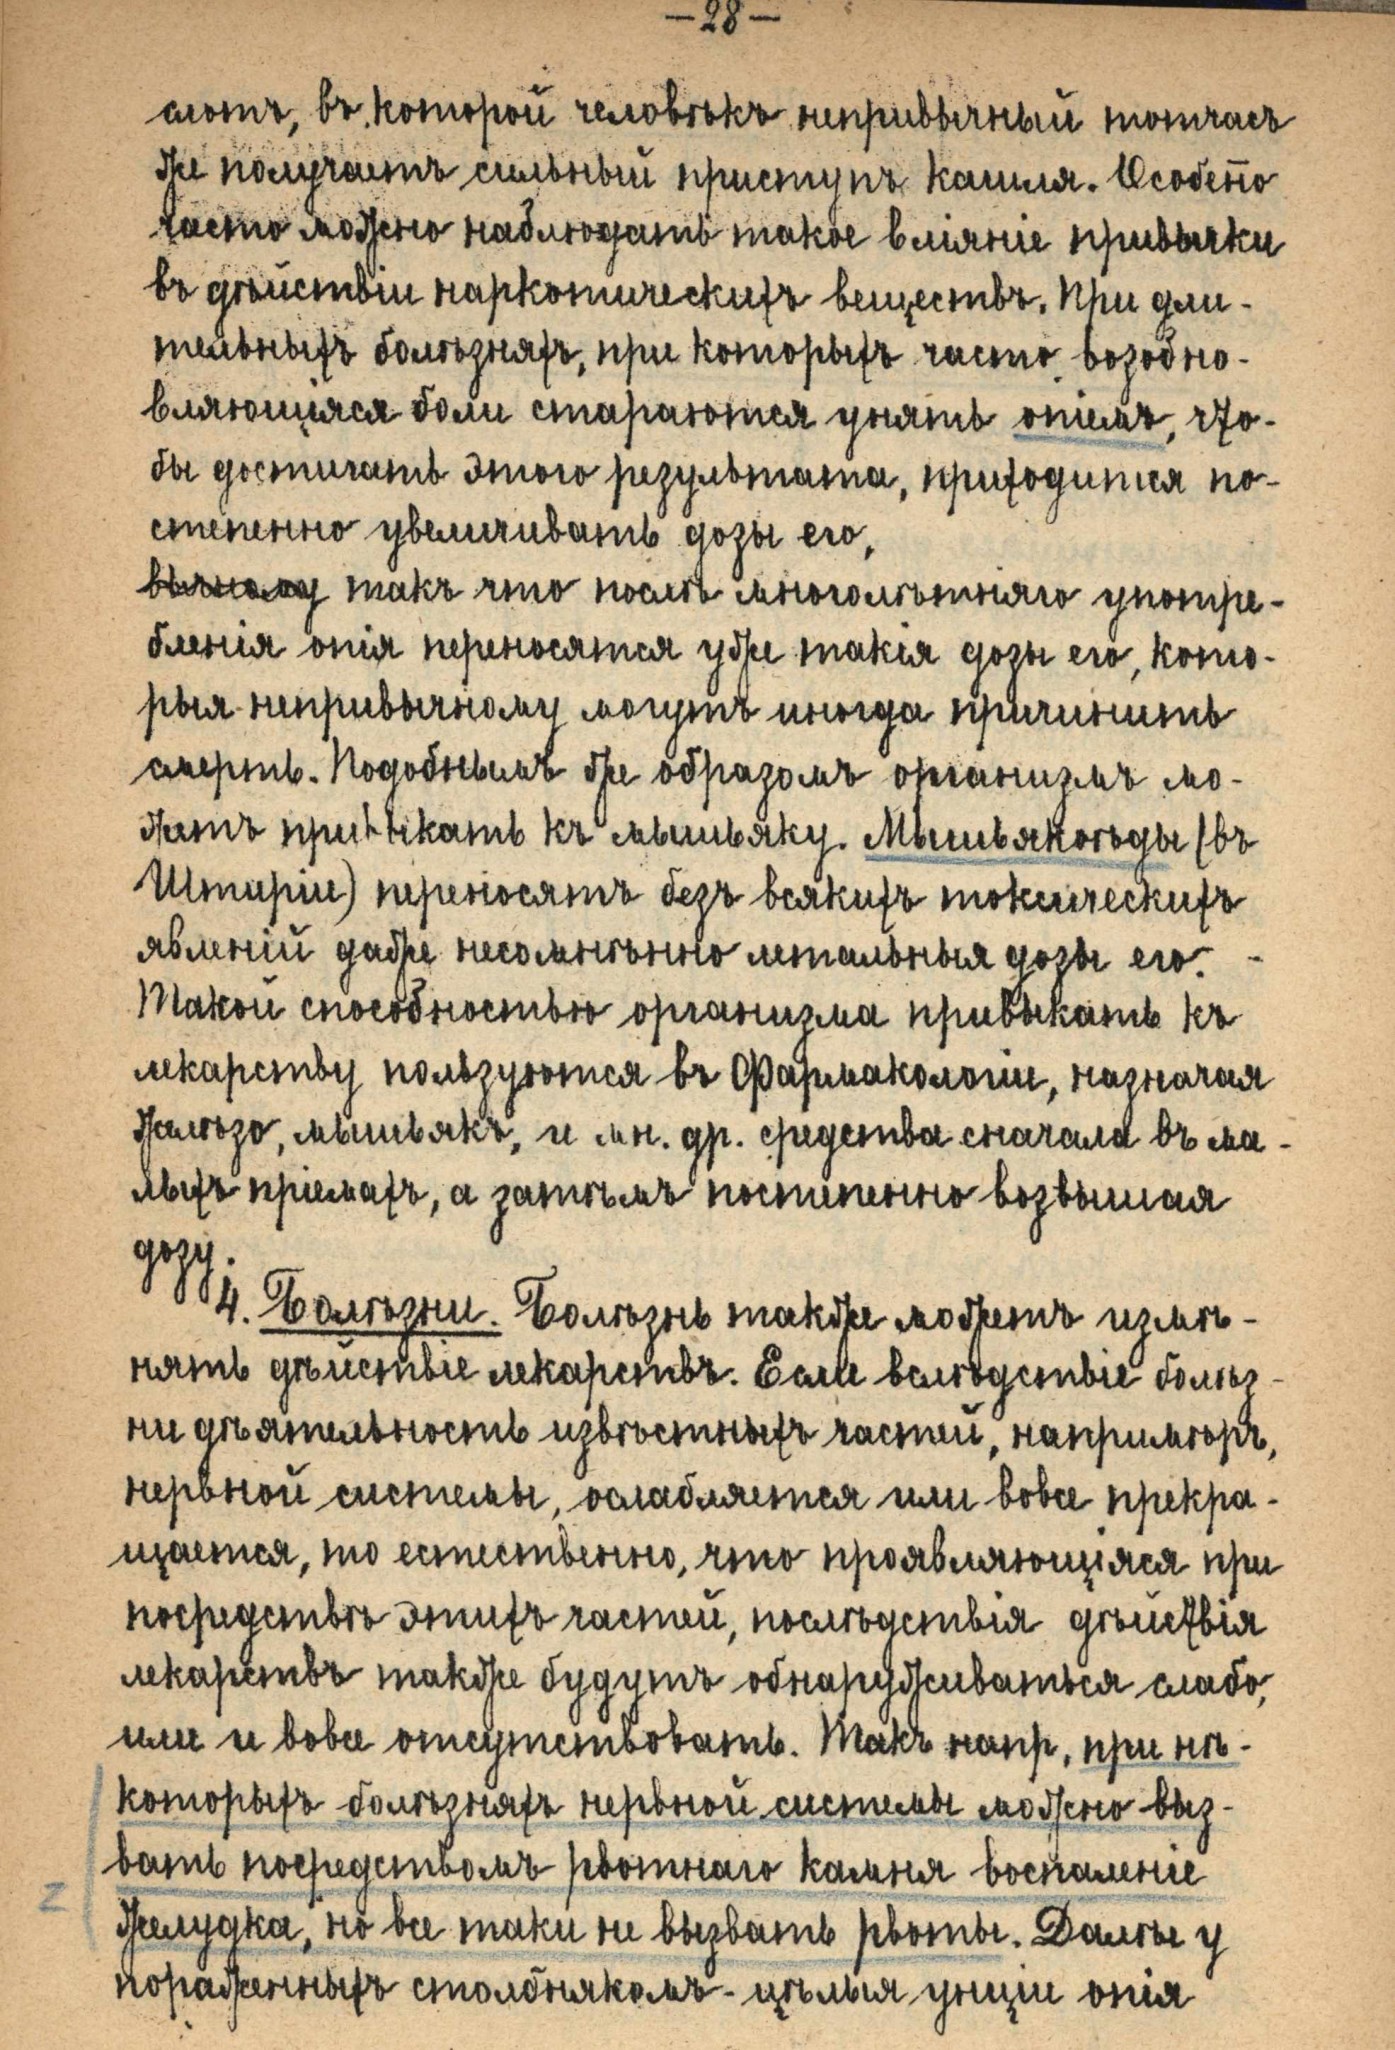 —28—
слотъ, въ которой человѣкъ непривычный тотчасъ
же получаетъ сильный приступъ кашля. Особено̄
часто можно наблюдать такое вліяніе привычки
въ дѣйствіи наркотическихъ веществъ. При дли-
тельныхъ болѣзняхъ, при которыхъ часто возобно-
вляющіяся боли стараются унять опіемъ, что-
бы достигать этого результата, приходится по-
степенно увеличивать дозы его,
вычному такъ что послѣ многолѣтняго употре-
бленія опія переносятся уже такія дозы его, кото-
рыя непривычному могутъ иногда причинить
смерть. Подобнымъ же образомъ организмъ мо-
жетъ привыкать къ мышьяку. Мышьякоѣды (въ
Штиріи) переносятъ безъ всякихъ токсическихъ
явленій даже несомнѣнно летальныя дозы его. -
Такой способностью организма привыкать къ
лекарству пользуются въ Фармакологіи, назначая
желѣзо, мышьякъ, и мн. др. средства сначала въ ма-
лыхъ пріемахъ, а затѣмъ постепенно возвышая
дозу.
4. Болѣзни. Болѣзнь также можетъ измѣ-
нять дѣйствіе лекарствъ. Если вслѣдствіе болѣз-
ни дѣятельность извѣстныхъ частей, напримѣръ,
нервной системы, ослабляется или вовсе прекра-
щается, то естественно, что проявляющіяся при
посредствѣ этихъ частей, послѣдствія дѣйствія
лекарствъ также будутъ обнаруживаться слабо,
или и вовсе отсутствовать. Такъ напр, при нѣ-
которыхъ болѣзняхъ нервной системы можно выз-
вать посредствомъ рвотнаго камня воспаленіе
z желудка, но все таки не вызвать рвоты. Далѣе у
пораженныхъ столбнякомъ - цѣлыя унціи опія